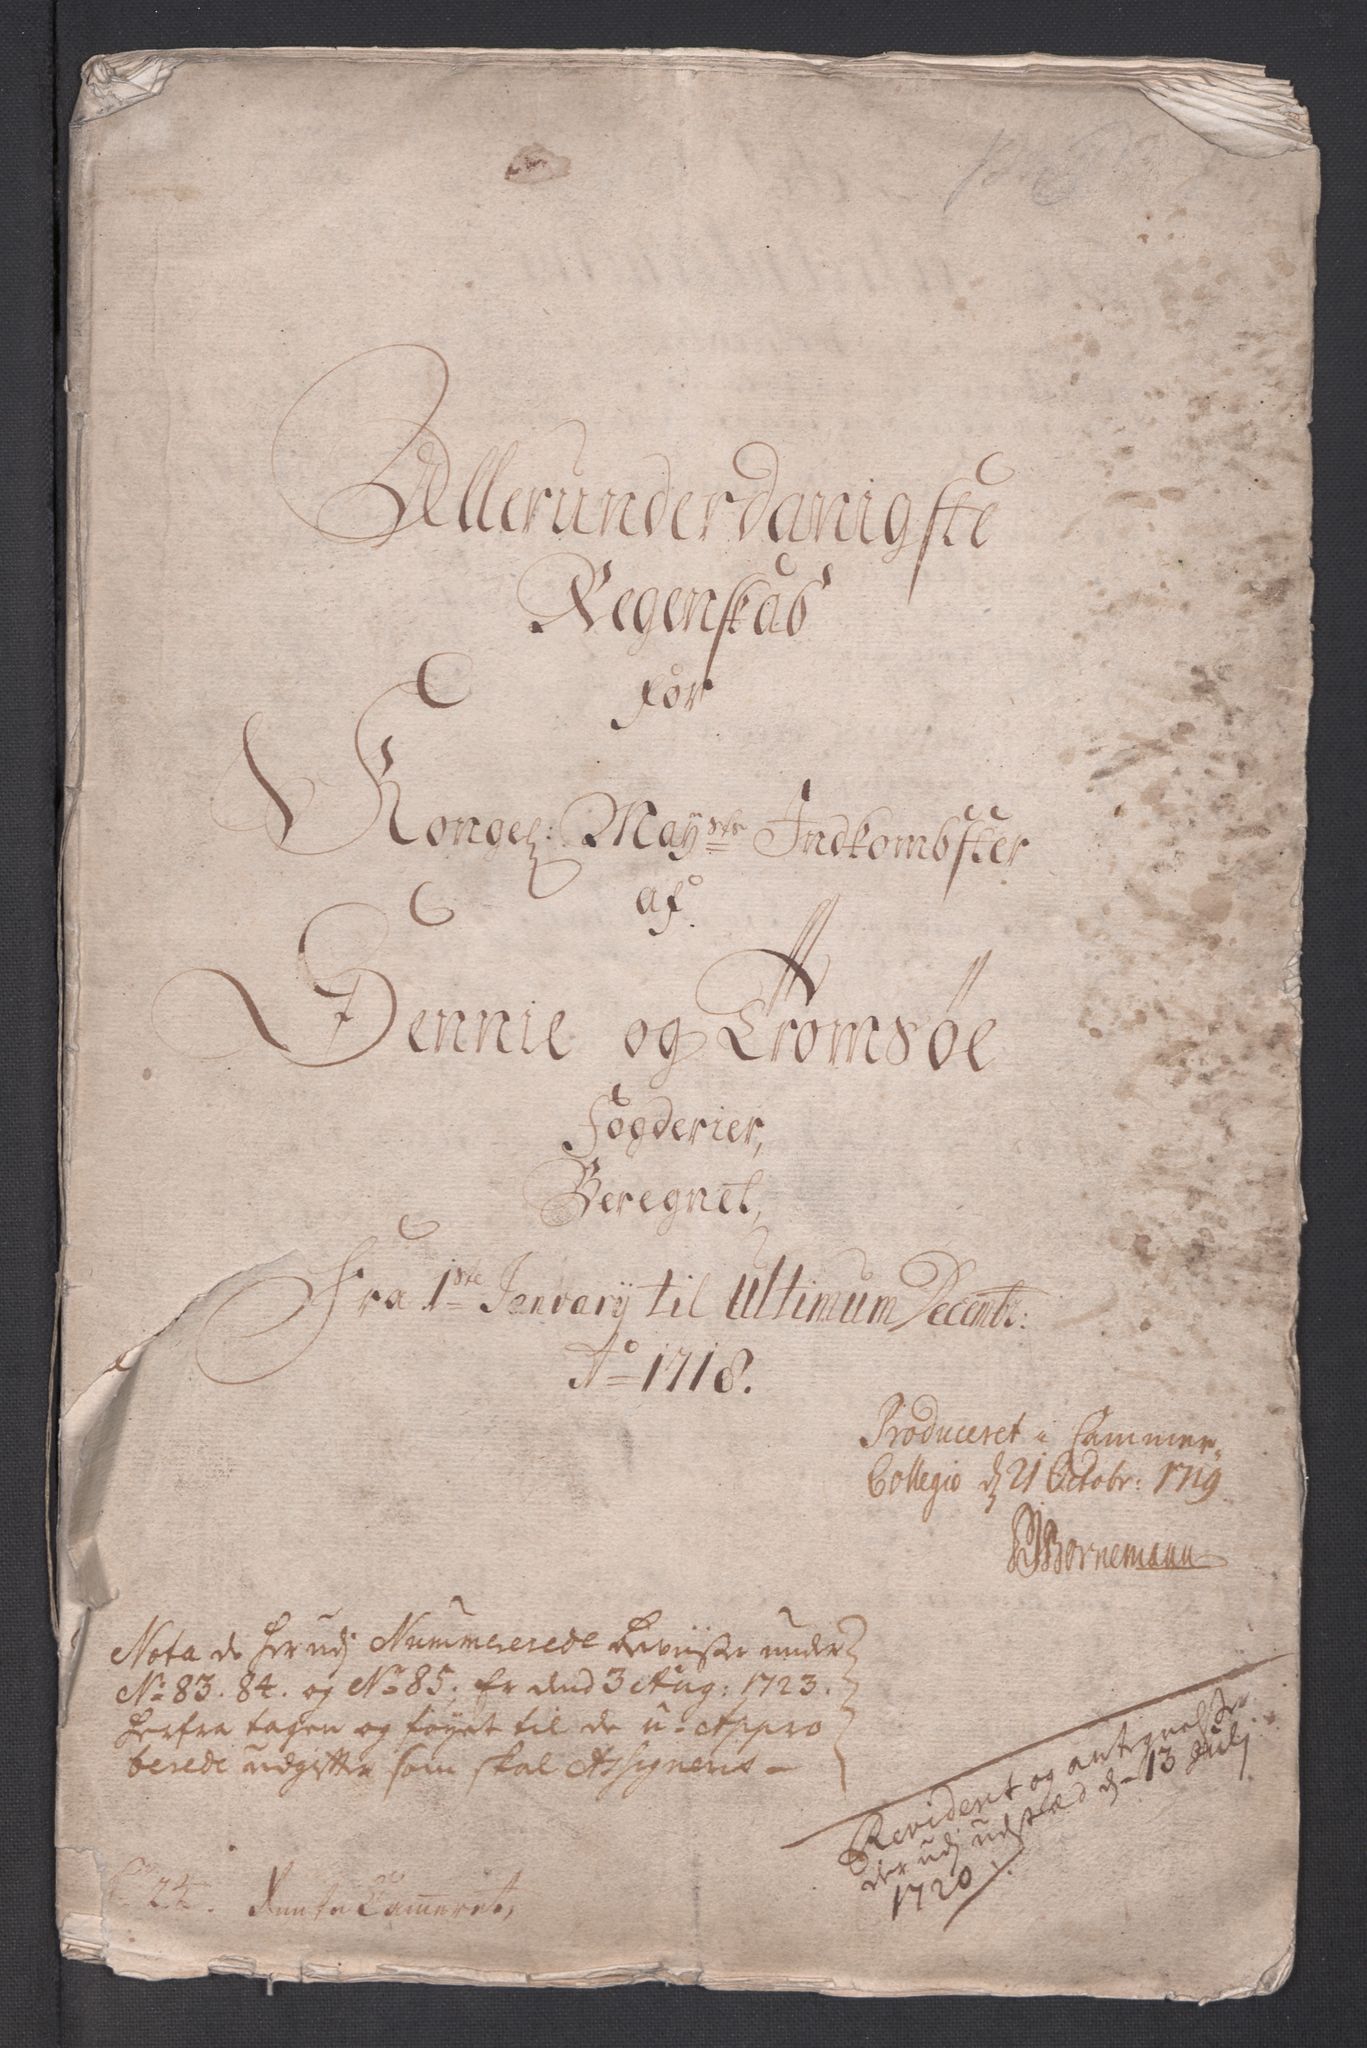 Allerunderdanigste
Regenskab
for
Kongel: Mayst: Indkombster
af
Sennie og Tromsøe
Fogderier,
Beregnet,
Fra 1ste Januarij til Ultimum Decembr:
Ao 1718.
Produceret i Cammer-
Collegio d 21 Octobr: 1719
Bornemann
Nota de herudj Nummererede Beviiser under
No 83. 84. og No 85, er dend 3 Aug: 1723.
herfra tagen og føyet til de u-Appro
berede udgifter som skal Assigneris
Revideret og antegnelser
derudj udstæd d 13 Julj
1720
No 24. Rente Cammeret,